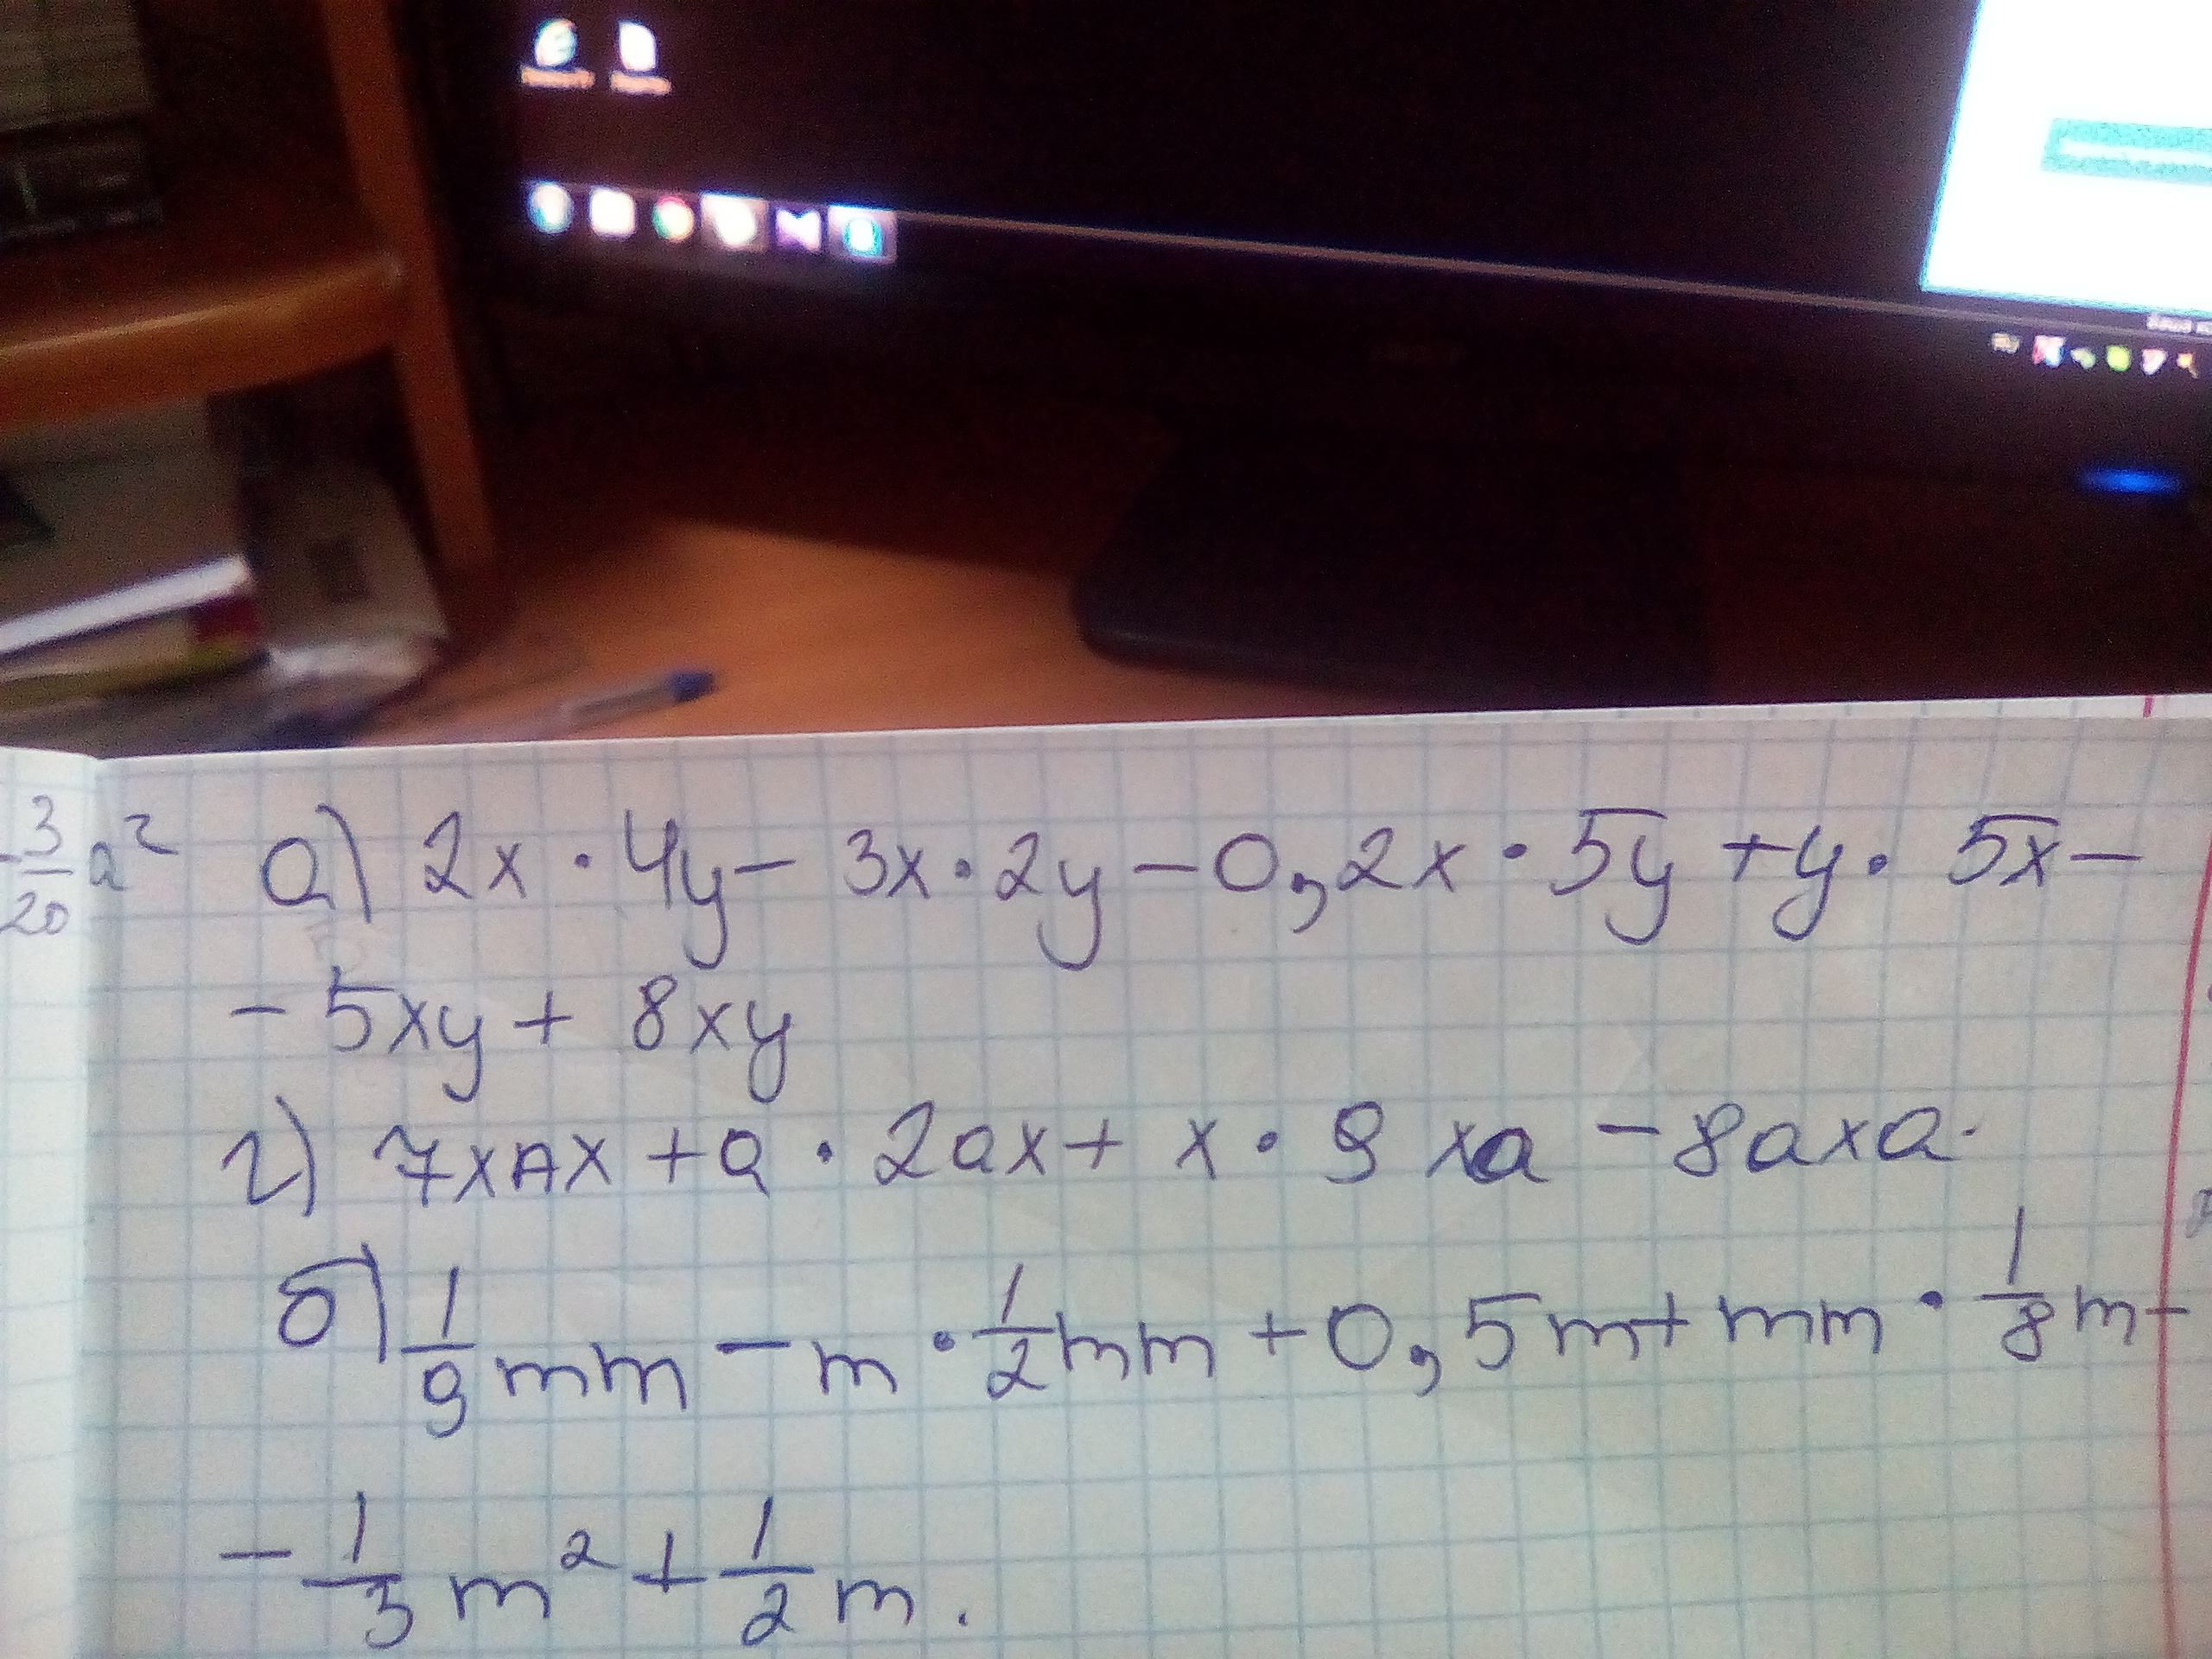 -3/20 a²
а) 2x · 4y - 3x · 2y - 0,2x · 5y + y · 5x -
- 5xy + 8xy
г) 7xAx + a · 2ax + x · 9 xa - 8axa.
б) 1/9 mm - m · 1/2 mm + 0,5m + mm · 1/8 m -
- 1/3 m² + 1/2 m.